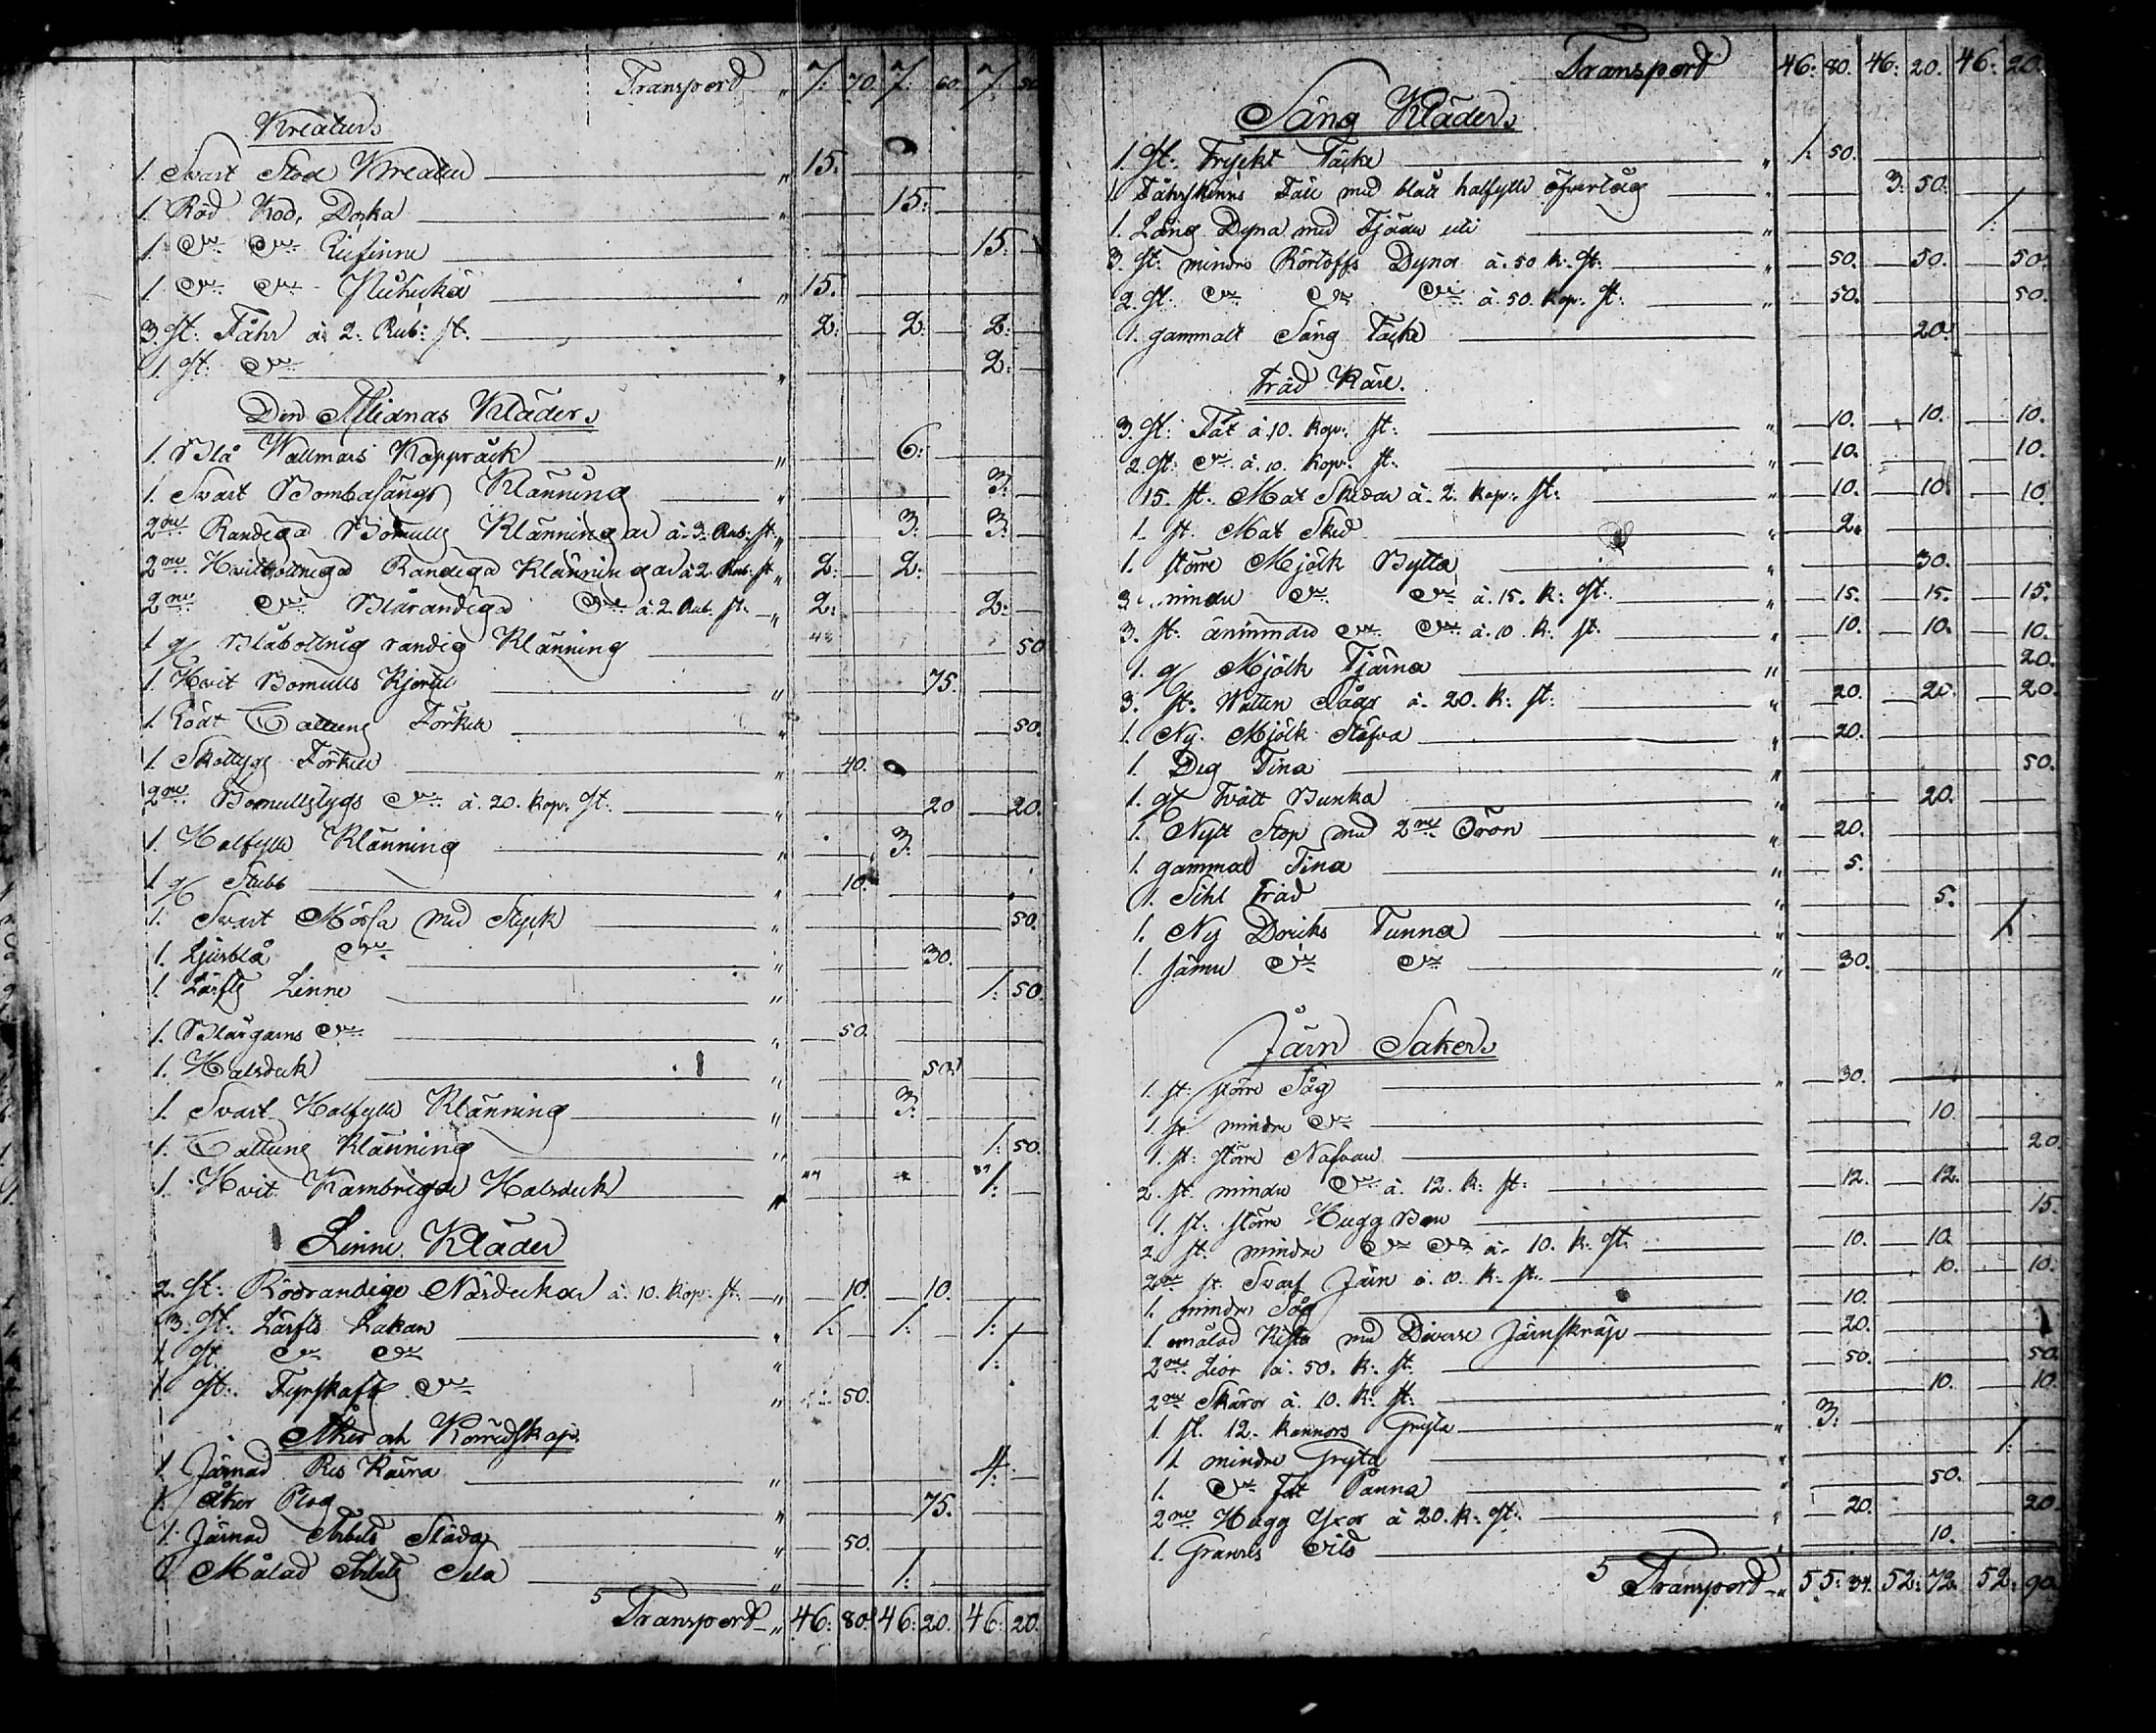 Transport " 7: 70. 7: 60. 7: 50
Kreatur
1. Svart Stod Kreatur " 15.
1. Röd Kod, Doska " 15:
1. Do Do 15:
1. Do Do " 15.
3. st: Fåhr à 2: Rub: st. 2: 2: 2:
1 st: Do " 2:
Den Aflidnas Kläder
1. Blå Wallmars Kappråck " 6:
1. Svart Bombasängs Klänning " 3:
2ne Randiga Bomulls Klänningar à 3. Rub: st. " 3: 3:
2ne Hvitbottniga Randiga Klänningar à 2 Rub: st " 2: 2:
2ne Do Blårandiga Do à 2 Rub. st. " 2: 2:
1 g/ Blåbottnig randig Klänning 50
1. Hvit Bomulls Kjortel " 75.
1. Rödt Cattuns Förkle " 50.
1. Skottygs Förkle " 40.
2ne Bomullstygs Do à. 20. kop: st: " 20 20.
1. Halfylle Klänning " 3:
1 g/ Stubb " 10.
1. Svart Mössa med Styck " 50.
1. Ljusblå Do " 30.
1. Lärfts Linne " 1: 50.
1. Blårgarns Do " 50.
1. Halsduk " 50.
1. Svart Halfylle Klänning " 3:
1. Cattuns Klänning " 1: 50.
1. Hvit Kambrigs Halsduk " 1:
Linne Kläder
2. st: Rödrandige Näsdukar à. 10. kop: st. " 10. 10.
3. st: Lärfts Lakan " 1: 1: 1:
1 st. Do Do " 1:
1 st: Fyrskafts Do " 50.
Åker och Körredskap.
1. Järnad Res Kärra " 4:
1. Åker Plog " 75.
1. Järnad Arbets Släda " 50.
1. Målad Arbets Sela " 1:
5 Transport " 46: 80. 46: 20. 46: 20.
Transport 46: 80. 46: 20. 46: 20.
Säng Kläder
1. st: Tryckt Täcke " 1: 50.
1 Fåhrskinns Fäll med blått halfylle öfvertåg " 3: 50.
1. Lång Dyna med Fjäder uti " 1:
3. st: mindre Dynor à. 50 k. st: " 50. 50. 50.
2. st: Do Do Do à. 50. kop: st: " 50. 50.
1. gammalt Säng Täcke 20.
Träd Käril.
3. st: Fat à 10. kop: st: " 10. 10. 10.
2. st: Do à. 10. kop: st: 10. 10.
15. st: Mat Skedar à. 2. kop: st: " 10. 10. 10
1. st. Mat Sked " 2.
1. större Mjölk Bytta " 30.
3. mindre Do Do à. 15. k: st: " 15. 15. 15.
3. st: ännmdre Do Do à. 10. k: st. 10. 10. 10.
1. g/ Mjölk Tjärna " 20.
3. st: Watten Sågr à. 20. k: st: " 20. 20. 20.
1. Ny Mjölk Stäfva " 20.
1. Deg Tina " 50.
1. g/ Tvätt Bunka " 20.
1. Nytt Stop med 2ne Öron " 20.
1. gammal Tina " 5.
1. Sihl Träd " 5.
1. Ny Dricks Tunna " 1:
1. sämre Do Do " 30.
Järn Saker
1. st: större Såg " 30.
1. st mindre Do 10.
1. st: större Nafvare 20
2. st. mindre Do à. 12. k: st: 12. 12.
1. st: större Hugg 15.
2 st. mindre Do Do à. 10. k. st. 10. 10.
2ne st. Svarf Järn à. 10. k. st. 10. 10.
1. mindre Såg 10.
1. målad Kista med Diverse Järnskräp 20.
2ne Lior à. 50. k: st. 50. 50.
2ne Skäror à. 10. k: st: 10. 10.
1 st. 12. kannors Gryta " 3:
1 mindre Gryta " 1:
1. Do Fot Panna " 50.
2ne Hugg Yxor à 20. k: st: " 20. 20.
1. 10.
5 Transport " 55: 34. 52: 72. 52: 90.